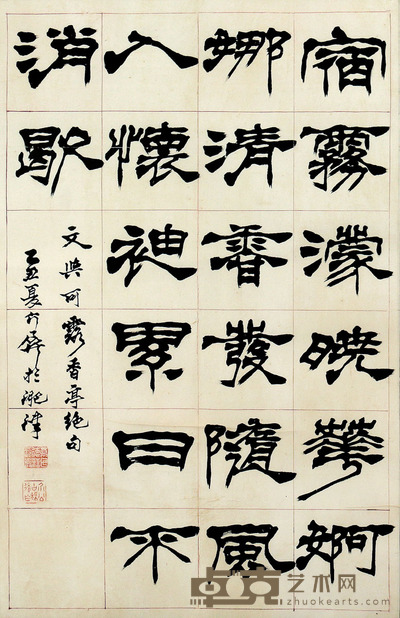 宿霧濛曉華婀
娜清香發隨風
入懷袖累日不
消歇
文與可露香亭絕句
乙丑夏
卓克艺术网
zhuokearts.com